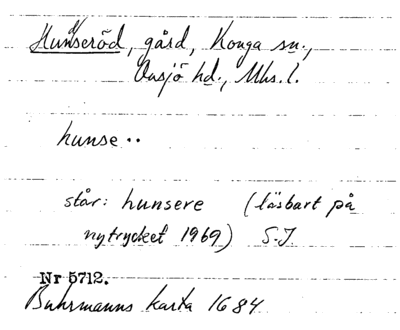 Hundseröd, gård, Konga sn.,
Onsjö hd., Mhs. l.
hunse ..
står: hunsere (läsbart på
nytrycket 1969) S.I
Nr 5712.
Buhrmanns karta 1684